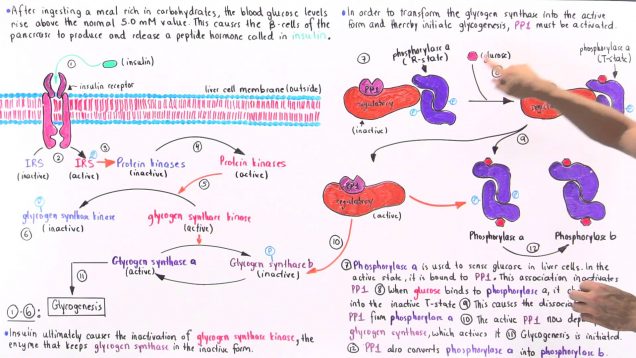 •After ingesting a meal rich in carbohydrates, the blood glucose levels
rise above the normal 5.0 mM value. This causes the β-cells of the
pancreas to produce and release a peptide hormone called in insulin.
①
(insulin)
insulin receptor
liver cell membrane (outside)
IRS
(inactive)
②
IRS
(active)
P
③
Protein kinases
(inactive)
④
Protein kinases
(active)
⑤
P
glycogen synthase kinase
(inactive)
⑥
glycogen synthase kinase
(active)
Glycogen synthase a
(active)
P
Glycogen synthase b
(inactive)
⑪
①-⑥:
Glycogenesis
•Insulin ultimately causes the inactivation of glycogen synthase kinase, the
enzyme that keeps glycogen synthase in the inactive form.
•In order to transform the glycogen synthase into the active
form and thereby initiate glycogenesis, PP1 must be activated.
⑦
phosphorylase a
(R-state)
PP1
regulatory
(inactive)
P
P
(glucose)
phosphorylase a
(T-state)
P
⑨
PP1
regulatory
(active)
⑩
P
P
Phosphorylase a
Phosphorylase b
⑫
⑦ Phosphorylase a is used to sense glucose in liver cells. In the
active state, it is bound to PP1. This association inactivates
PP1 ⑧ When glucose binds to phosphorylase a, it
into the inactive T-state ⑨ This causes the
PP1 from phosphorylase a ⑩ The active PP1 now
glycogen synthase, which activates it ⑪ Glycogenesis is initiated.
⑫ PP1 also converts phosphorylase a into phosphorylase b.